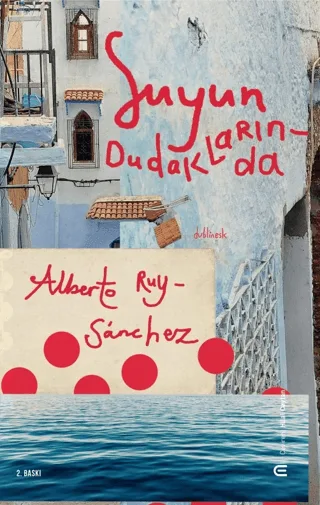 Suyun
Dudakların-
da
dublinesk
Alberto Ruy-
Sánchez
2. BASKI